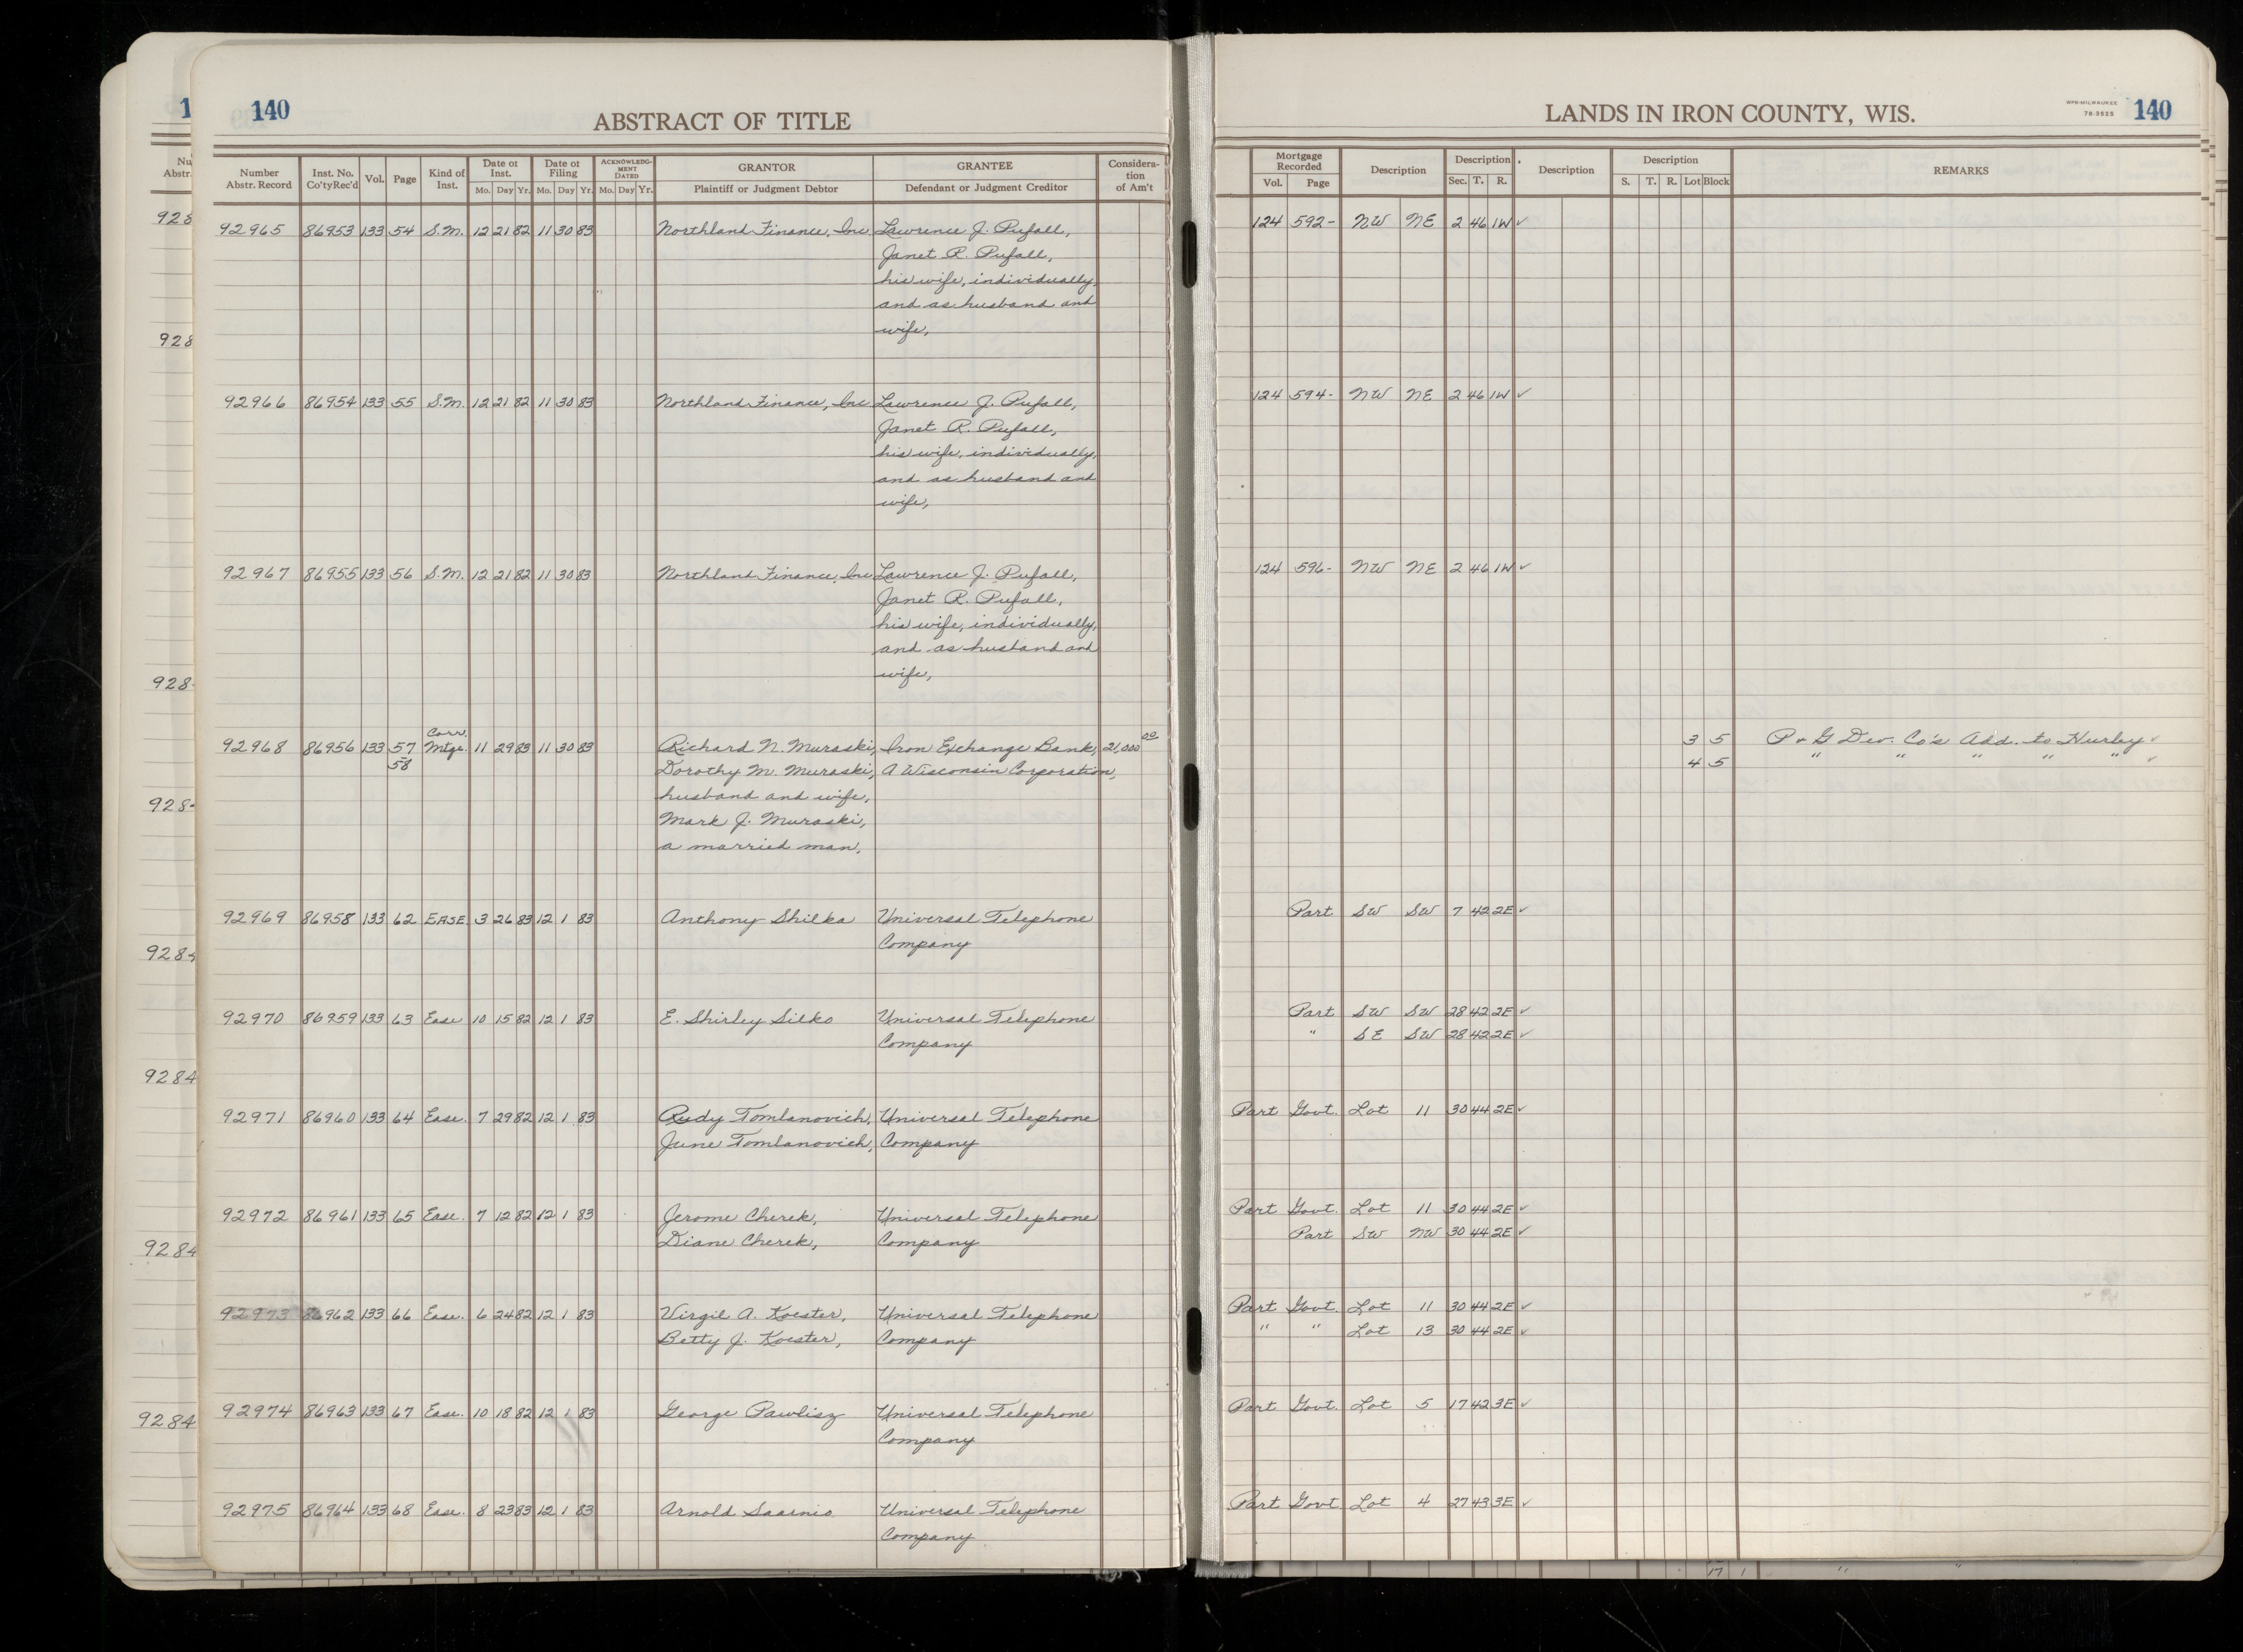 140
ABSTRACT OF TITLE
Number Abstr. Record | Inst. No. Co'ty Rec'd | Vol. | Page | Kind of Inst. | Date of Inst. Mo. Day Yr. | Date of Filing Mo. Day Yr. | ACKNOWLEDGMENT DATED Mo. Day Yr. | GRANTOR Plaintiff or Judgment Debtor | GRANTEE Defendant or Judgment Creditor | Consideration of Am't
92965 86953 133 54 S.M. 12 21 82 11 30 83 Northland Finance, Inc. Lawrence J. Pufall,
Janet R. Pufall,
his wife, individually,
and as husband and
wife,
92966 86954 133 55 S.M. 12 21 82 11 30 83 Northland Finance, Inc. Lawrence J. Pufall,
Janet R. Pufall,
his wife, individually,
and as husband and
wife,
92967 86955 133 56 S.M. 12 21 82 11 30 83 Northland Finance, Inc. Lawrence J. Pufall,
Janet R. Pufall,
his wife, individually,
and as husband and
wife,
Corr.
92968 86956 133 57 Mtge. 11 29 83 11 30 83 Richard N. Muraski, Iron Exchange Bank, 21,000 00
58 Dorothy M. Muraski, A Wisconsin Corporation,
husband and wife,
Mark J. Muraski,
a married man,
92969 86958 133 62 EASE. 3 26 83 12 1 83 Anthony Shilka Universal Telephone
Company
92970 86959 133 63 Ease 10 15 82 12 1 83 E. Shirley Silko Universal Telephone
Company
92971 86960 133 64 Ease. 7 29 82 12 1 83 Rudy Tomlanovich, Universal Telephone
June Tomlanovich, Company
92972 86961 133 65 Ease. 7 12 82 12 1 83 Jerome Cherek, Universal Telephone
Diane Cherek, Company
92973 86962 133 66 Ease. 6 24 82 12 1 83 Virgil A. Koester, Universal Telephone
Betty J. Koester, Company
92974 86963 133 67 Ease. 10 18 82 12 1 83 George Pawlisz Universal Telephone
Company
92975 86964 133 68 Ease. 8 23 83 12 1 83 Arnold Saarnio Universal Telephone
Company
LANDS IN IRON COUNTY, WIS.
WPR-MILWAUKEE
78-3525
140
Mortgage Recorded Vol. Page | Description | Description Sec. T. R. | Description | Description S. T. R. Lot Block | REMARKS
124 592- NW NE 2 46 1W ✓
124 594- NW NE 2 46 1W ✓
124 596- NW NE 2 46 1W ✓
3 5 P & G Dev. Co's Add. to Hurley ✓
4 5 " " " " " ✓
Part SW SW 7 42 2E ✓
Part SW SW 28 42 2E ✓
" SE SW 28 42 2E ✓
Part Govt. Lot 11 30 44 2E ✓
Part Govt. Lot 11 30 44 2E ✓
Part SW NW 30 44 2E ✓
Part Govt. Lot 11 30 44 2E ✓
" " Lot 13 30 44 2E ✓
Part Govt. Lot 5 17 42 3E ✓
Part Govt. Lot 4 27 43 3E ✓